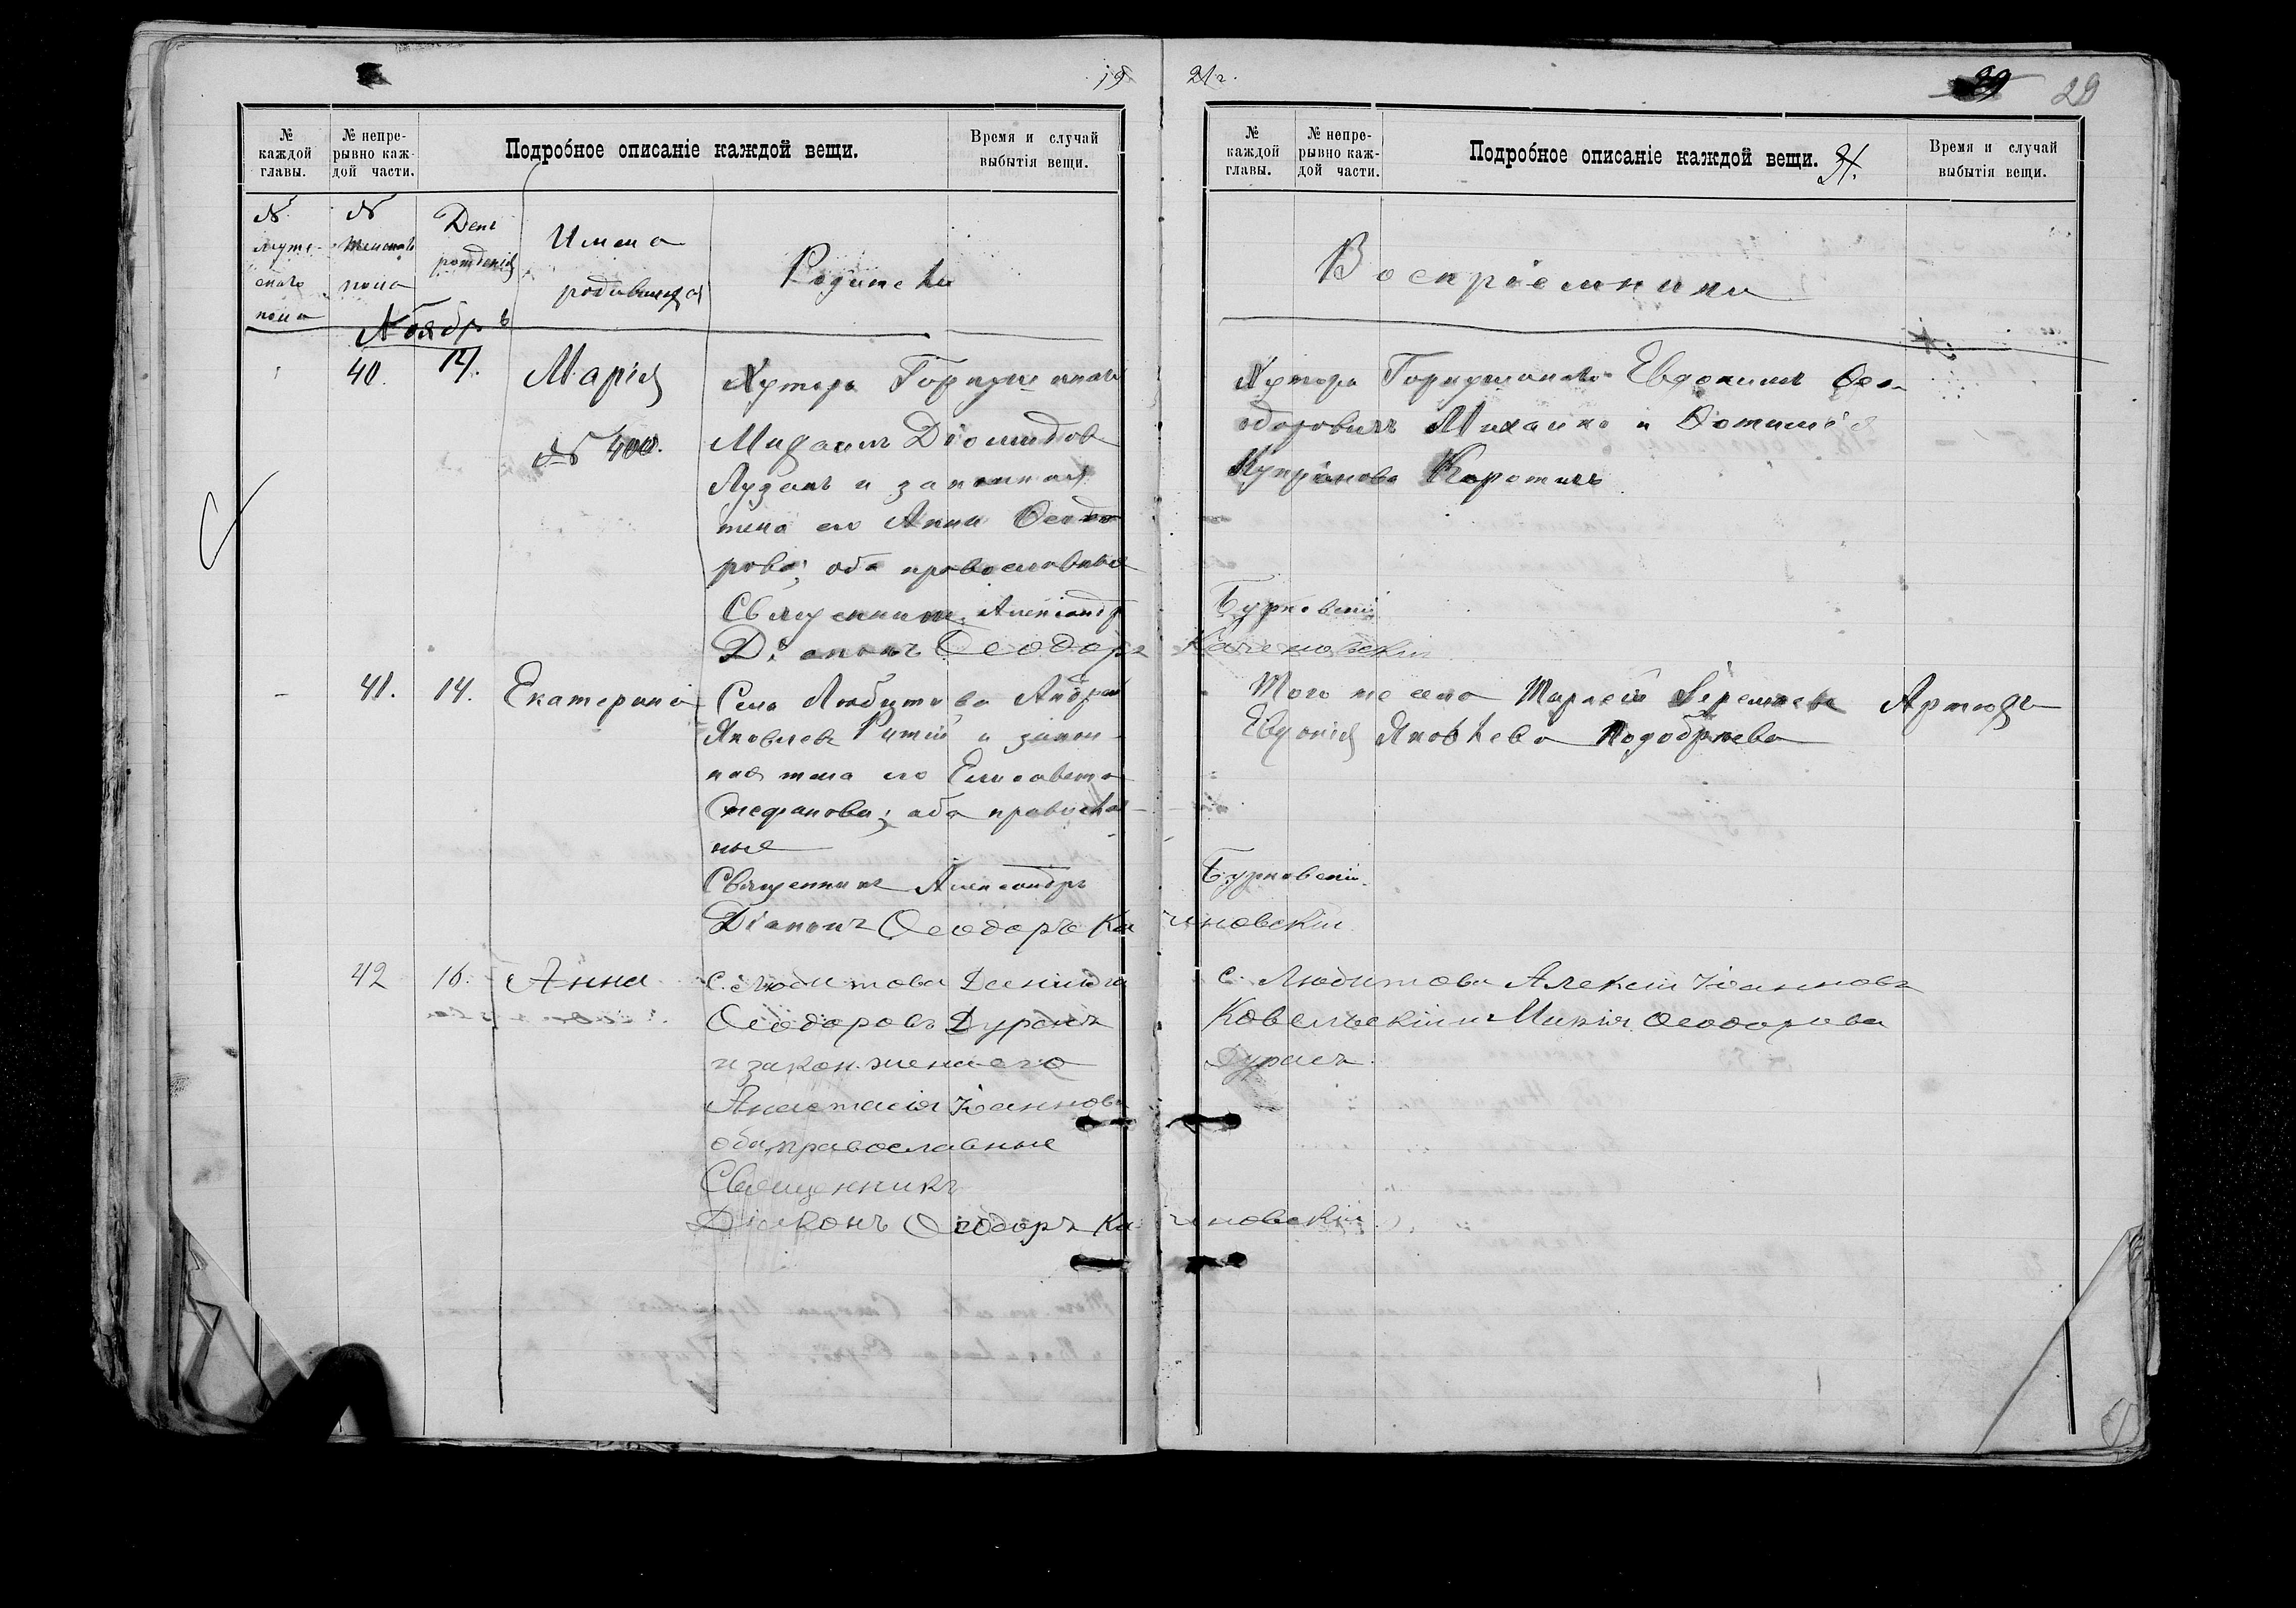 19
№ каждой главы.
№ непрерывно каждой части.
Подробное описаніе каждой вещи.
Время и случай выбытія вещи.
№ мужескаго пола
№ женскаго пола
День рожденія
Имена родившихся
Родители
Ноябрь
40. 14. Марія
№ 400.
Хутора
Михаилъ Діомидов
Лузанъ и законная
жена его Анна Ѳеодо
рова; оба православные
Священникъ Александръ
Діаконъ Ѳеодоръ
- 41. 14. Екатерина
Села Любитова Андрей
Яковлевъ и закон-
ная жена его Елисавета
Стефанова; оба православ-
ные
Священникъ Александръ
Діаконъ Ѳеодоръ Ка
42 16. Анна
с. Любитова
Ѳеодоровъ Дурасъ
и закон. жена его
Анастасія Іоаннова
оба православные
Священникъ
Діаконъ Ѳеодоръ Ка
21 г.
29 29
№ каждой главы.
№ непрерывно каждой части.
Подробное описаніе каждой вещи. 21.
Время и случай выбытія вещи.
Воспріемники
Хутора Евдокимъ Ѳео-
доровичъ и
Купріянова
Бурковскій
Качановскій
Того же села
Евдокія Яковлева
Бурковскій
чановскій
с. Любитова Алексій Іоанновъ
Ковельскій и Марія Ѳеодорова
Дурасъ.
чановскій